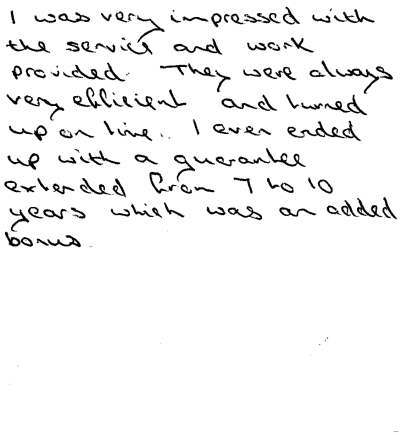 I was very impressed with
the service and work
provided. They were always
very efficient and turned
up on time.. I even ended
up with a guarantee
extended from 7 to 10
years which was an added
bonus.